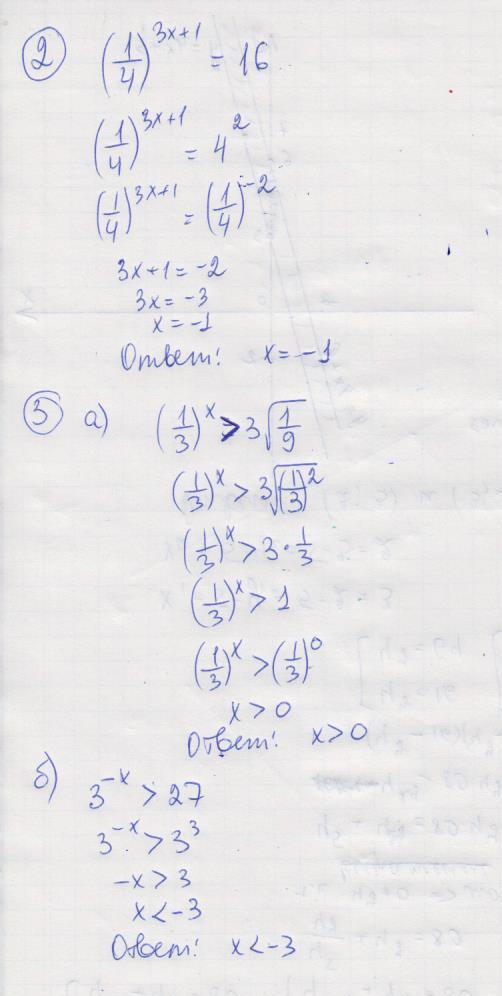 ② (1/4)^(3x+1) = 16
(1/4)^(3x+1) = 4^2
(1/4)^(3x+1) = (1/4)^(-2)
3x+1 = -2
3x = -3
x = -1
Ответ: x = -1
③ а) (1/3)^x > 3√(1/9)
(1/3)^x > 3√((1/3)^2)
(1/3)^x > 3 · 1/3
(1/3)^x > 1
(1/3)^x > (1/3)^0
x > 0
Ответ: x > 0
б) 3^(-x) > 27
3^(-x) > 3^3
-x > 3
x < -3
Ответ: x < -3